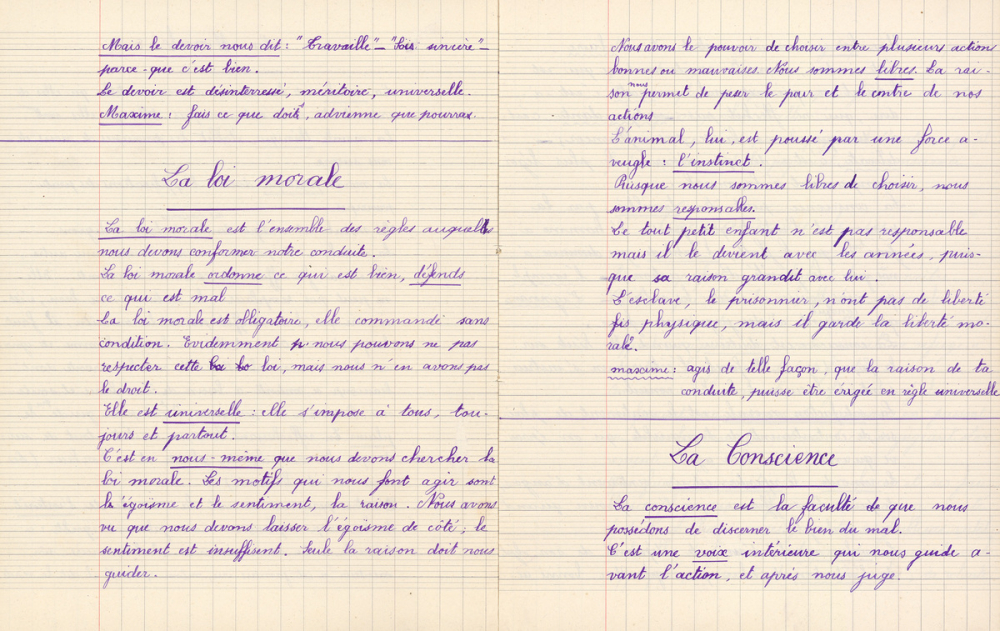 Mais le devoir nous dit : "Travaille" – "Sois sincère" –
parce-que c'est bien.
Le devoir est désintéressé, méritoire, universelle.
Maxime : fais ce que dois, advienne que pourra.
La loi morale
La loi morale est l'ensemble des règles auquelles
nous devons conformer notre conduite.
La loi morale ordonne ce qui est bien, défends
ce qui est mal
La loi morale est obligatoire, elle commande sans
condition. Evidemment nous pouvons ne pas
respecter cette loi, mais nous n'en avons pas
le droit.
Elle est universelle : elle s'impose à tous, tou-
jours et partout.
C'est en nous-même que nous devons chercher la
loi morale. Les motifs qui nous font agir sont
l'égoïsme et le sentiment, la raison. Nous avons
vu que nous devons laisser l'égoïsme de côté ; le
sentiment est insuffisent. Seule la raison doit nous
guider.
Nous avons le pouvoir de choisir entre plusieurs actions
bonnes ou mauvaises. Nous sommes libres. La rai-
son nous permet de peser le pour et le contre de nos
actions
L'animal, lui, est poussé par une force a-
veugle : l'instinct.
Puisque nous sommes libres de choisir, nous
sommes responsables.
Le tout petit enfant n'est pas responsable
mais il le devient avec les années, puis-
que sa raison grandit avec lui.
L'esclave, le prisonnier, n'ont pas de liberté
physique, mais il garde la liberté mo-
rale.
maxime : agis de telle façon, que la raison de ta
conduite, puisse être érigée en règle universelle
La Conscience
La conscience est la faculté que nous
possédons de discerner le bien du mal.
C'est une voix intérieure qui nous guide a-
vant l'action, et après nous juge.